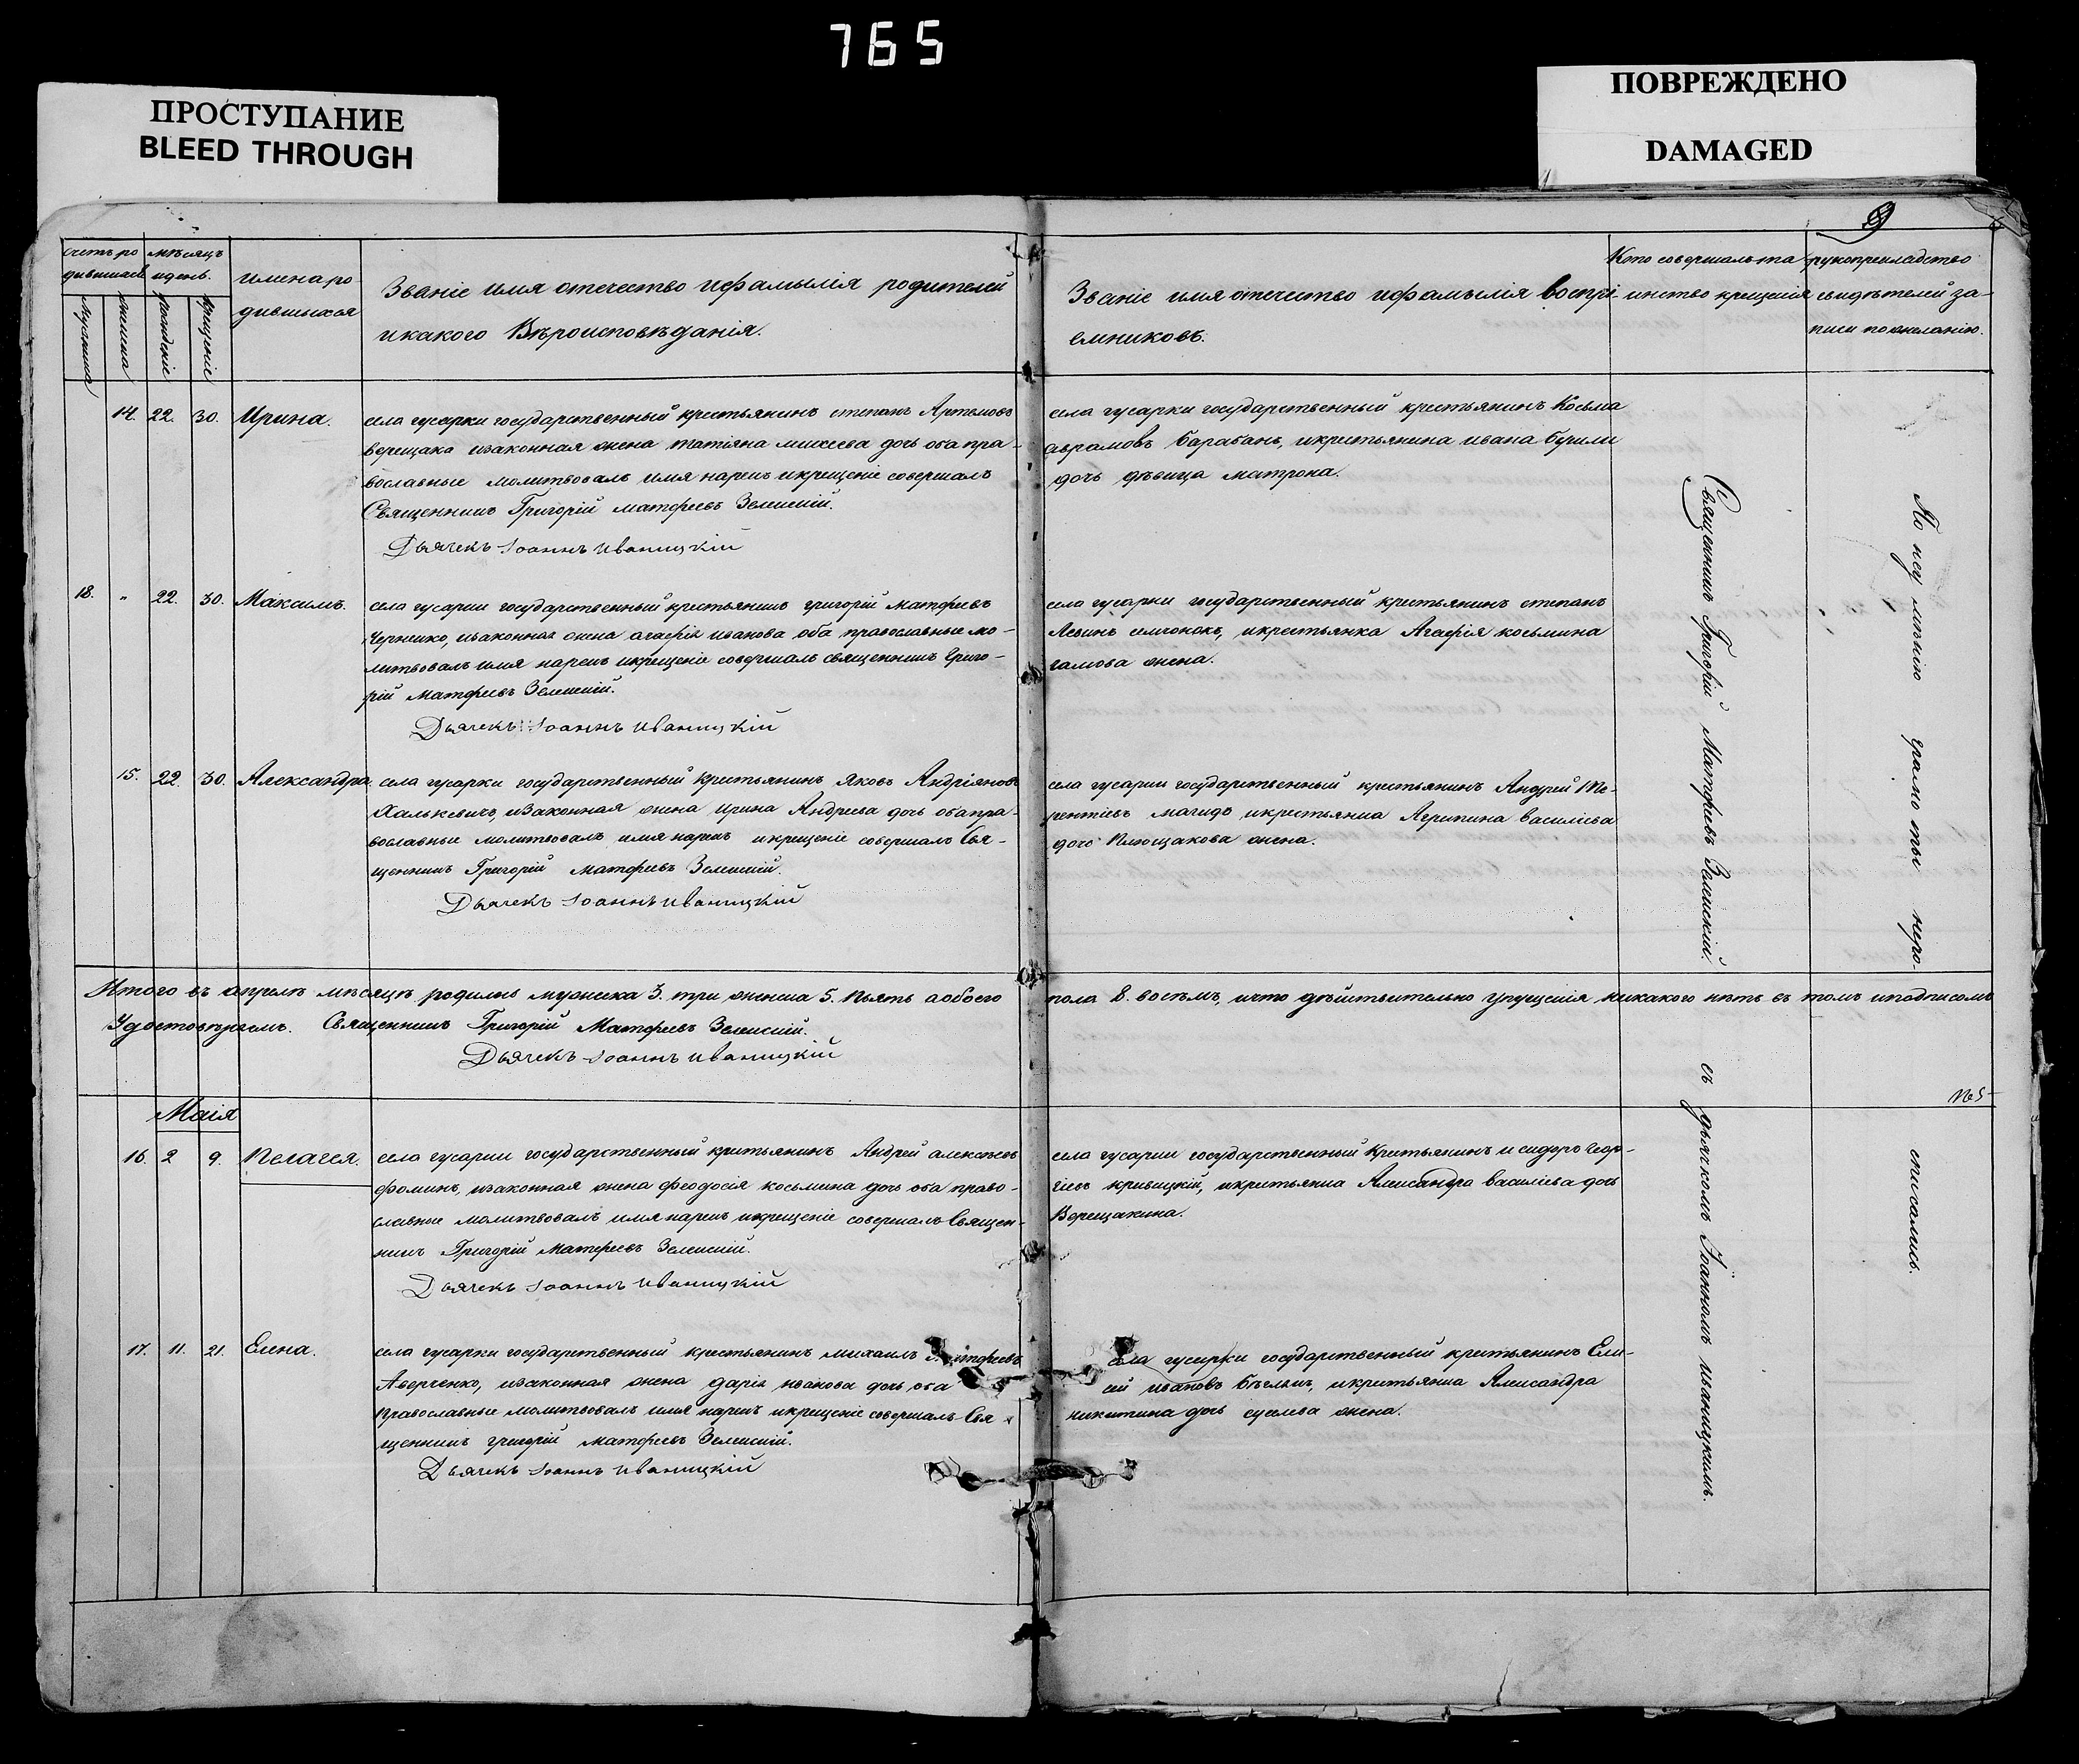 765
ПРОСТУПАНИЕ
BLEED THROUGH
ПОВРЕЖДЕНО
DAMAGED
9
счетъ ро
дившихся
мѣсяцъ
и день.
имена ро
дившихся
Званіе имя отечество и фамылія родителей
и какого Вѣроисповѣданія.
мужеска
женска
рожденіе
крещеніе
Званіе имя отечество и фамылія воспрі-
емниковъ.
Кто совершалъ та
инство крещенія
рукоприкладство
свидѣтелей за-
писи по желанію.
14. 22. 30. Ирина.
села гусарки государственный крестьянинъ степанъ Артемовъ
верещака и законная жена татіяна михеева дочь оба пра-
вославные молитвовалъ имя нарекъ и крещеніе совершалъ
Священникъ Григорій матфеевъ Зеленскій.
Дьячекъ Іоаннъ Иваницкій
села гусарки государственный крестьянинъ Косьма
аврамовъ барабанъ, и крестьянина ивана
дочь дѣвица матрона.
18. „ 22. 30. Максимъ.
села гусарки государственный крестьянинъ григорій матфеевъ
Черненко, и законная жена агафія иванова оба православные мо-
литвовалъ имя нарекъ и крещеніе совершалъ священникъ Григо-
рій Матфеевъ Зеленскій.
Дьячекъ Іоаннъ Иваницкій
села гусарки государственный крестьянинъ степанъ
и крестьянка Агафія косьмина
жена.
15. 22. 30. Александра.
села гусарки государственный крестьянинъ Яковъ Андріяновъ
Халькевичъ, и Законная жена Ирина Андреева дочь оба пра-
вославные молитвовалъ имя нарекъ и крещеніе совершалъ Свя-
щенникъ Григорій Матфеевъ Зеленскій.
Дьячекъ Іоаннъ Иваницкій
села гусарки государственный крестьянинъ Андрей Те-
рентіевъ магидъ и крестьянка василіева
дочь жена.
Итого въ апрелѣ мѣсяцѣ родилось мужеска 3. три женска 5. пьять а обоего
пола 8. восемъ, и что дѣйствительно упущенія никакого нѣтъ въ томъ и подписомъ
Удостовѣряемъ. Священникъ Григорій Матфеевъ Зеленскій.
Дьячекъ Іоаннъ Иваницкій
№ 5
Маія
16. 2 9. Пелагея.
села гусарки государственный крестьянинъ Андрей алексѣевъ
фоминъ, и законная жена феодосія косьмина дочь оба право-
славные молитвовалъ имя нарекъ и крещеніе совершалъ Священ-
никъ Григорій Матфеевъ Зеленскій.
Дьячекъ Іоаннъ Иваницкій
села гусарки государственный крестьянинъ исидоръ Геор-
гіевъ кривицкій, и крестьянка Александра василіева дочь
Верещакина.
17. 11. 21. Елена.
села гусарки государственный крестьянинъ михаилъ
Аверченко, и законная жена дарія иванова дочь оба
Православные молитвовалъ имя нарекъ и крещеніе совершалъ Свя
щенникъ григорій Матфеевъ Зеленскій.
Дьячекъ Іоаннъ Иваницкій
села гусарки государственный крестьянинъ Ели-
сей ивановъ и крестьянка Александра
никитина дочь жена.
Священникъ Григорій Матфеевъ Зеленскій.
съ дьячкомъ Іоанномъ иваницкимъ.
По неумѣнію грамоты неро-
списались.